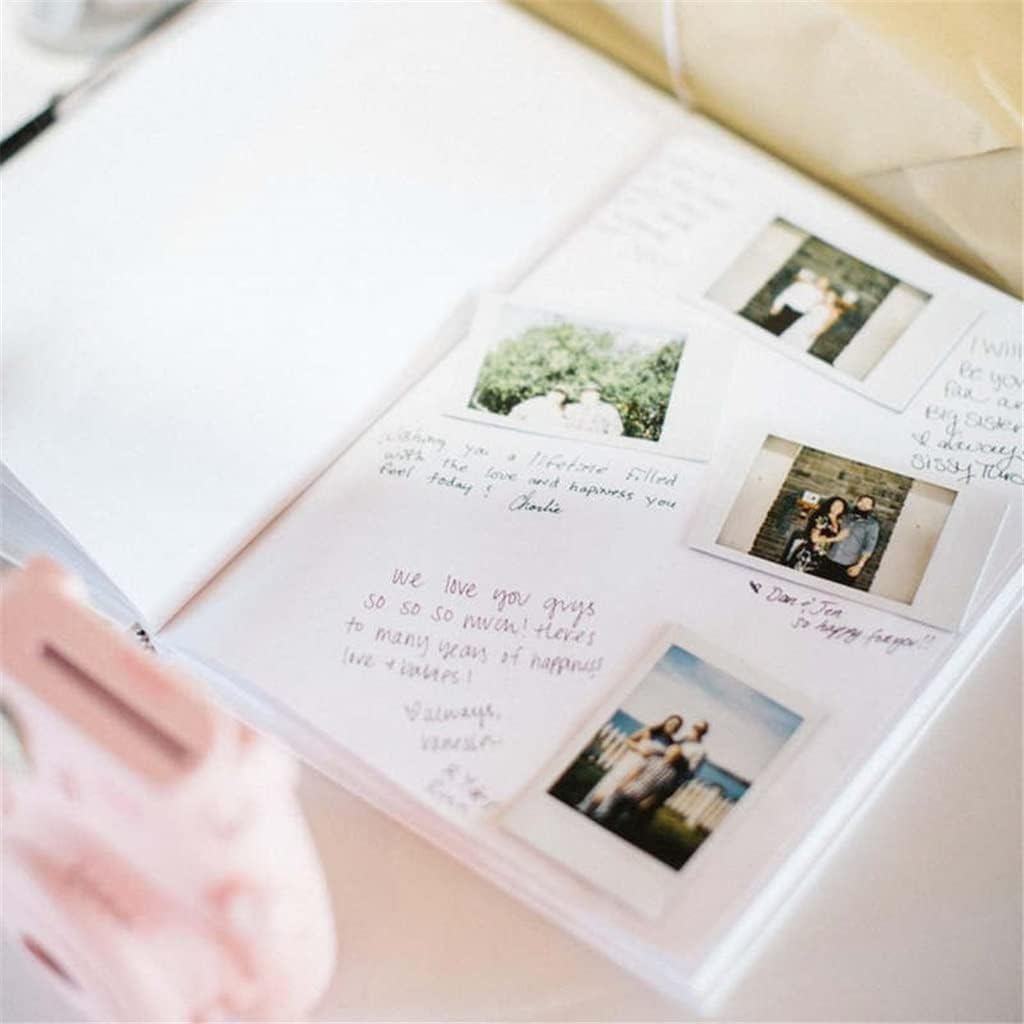 Wishing you a lifetime filled
with the love and happiness you
feel today!
Charlie
I will
be you
Big sister
♡ always
Sissy
♥ Dan & Jen
So happy for you!!
we love you guys
so so so much! Here's
to many years of happiness
love + babies!
♡ always,
Vanessa